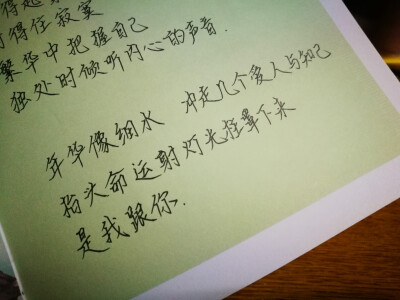 得起
得住寂寞
繁华中把握自己
独处时倾听内心的声音.
年华像细水 冲走几个爱人与知己
抬头命运射灯光柱罩下来
是我跟你.